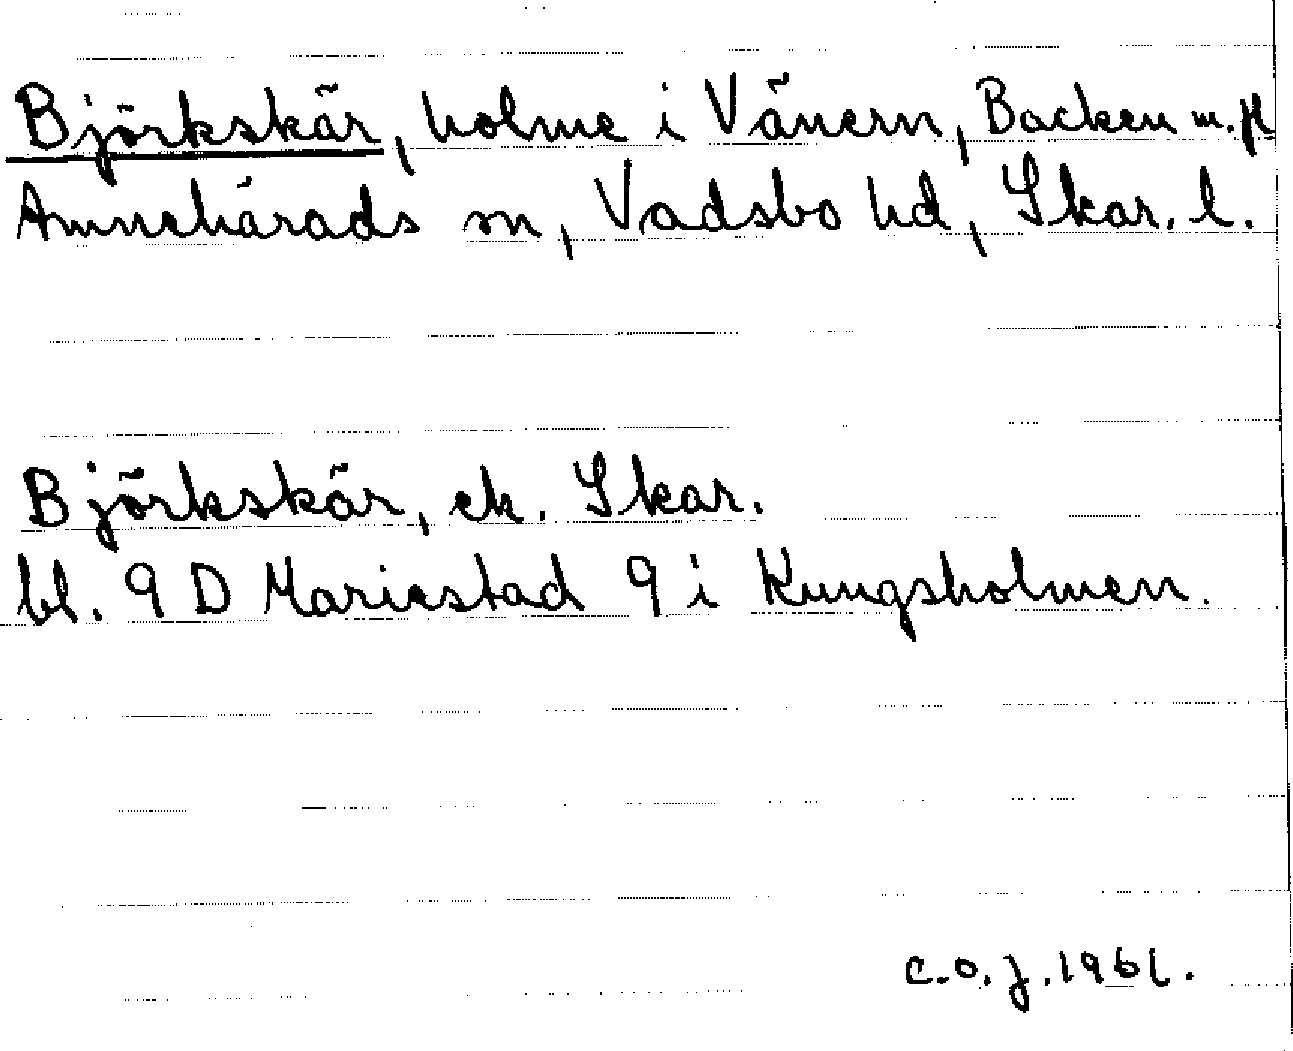 Björkskär, holme i Vänern, Backen m. fl
Amnehärads sn, Vadsbo hd, Skar. l.
Björkskär, ek. Skar.
bl. 9 D Mariestad 9 i Kungsholmen.
C.O.J. 1961.